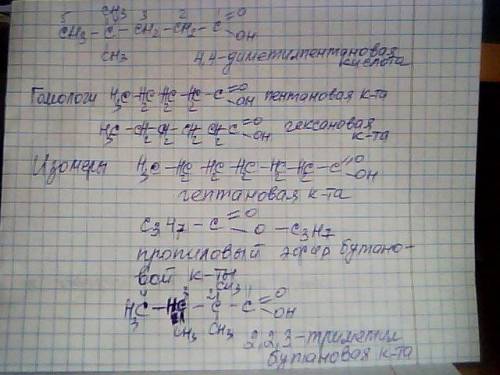 5 CH3 3 2
CH3 – C – CH2 – CH2 – C =O
CH3 OH
4,4-диметилпентановая
кислота
Гомологи H3C – H2C – H2C – H2C – C =O OH пентановая к-та
H3C – CH2 – CH2 – CH2 – CH2 – C =O OH гексановая
к-та
Изомеры H3C – H2C – H2C – H2C – H2C – H2C – C =O OH
гептановая к-та
C3H7 – C =O O – C3H7
пропиловый эфир бутано-
вой к-ты
4 3 2 CH3 1
H3C – HC – C – C =O OH
CH3 CH3
2,2,3-триметил
бутановая к-та